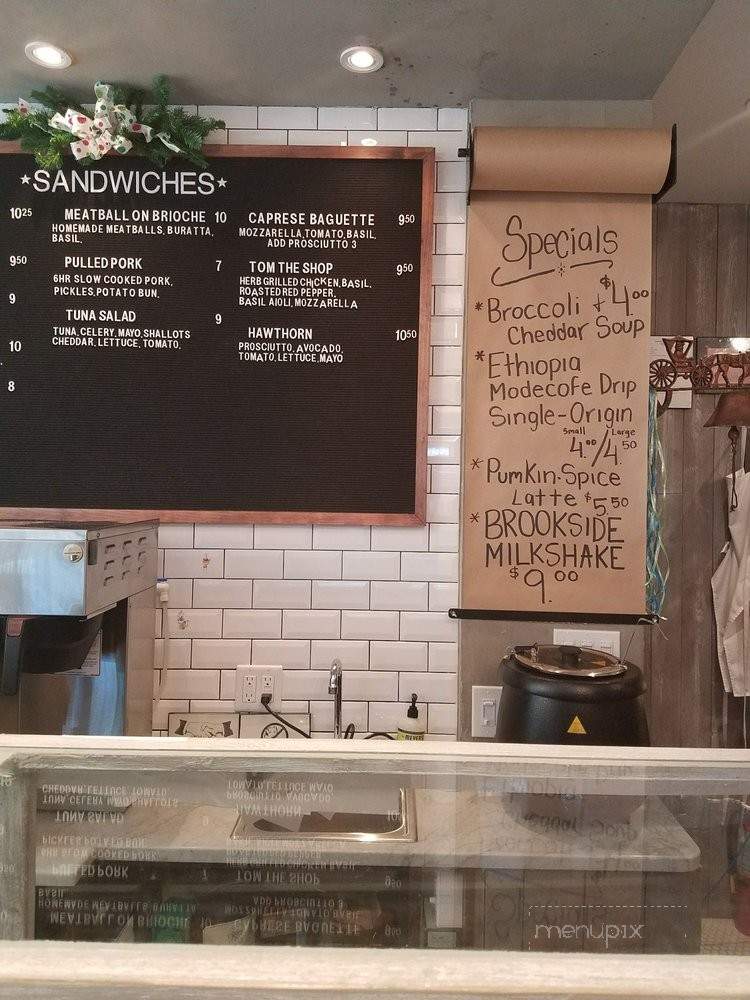 *SANDWICHES*
10²⁵
MEATBALL ON BRIOCHE 10
HOMEMADE MEATBALLS, BURATTA,
BASIL.
9⁵⁰
PULLED PORK 7
6HR SLOW COOKED PORK,
PICKLES, POTATO BUN.
9
TUNA SALAD 9
TUNA, CELERY, MAYO, SHALLOTS
CHEDDAR, LETTUCE, TOMATO.
10
8
CAPRESE BAGUETTE 9⁵⁰
MOZZARELLA, TOMATO, BASIL,
ADD PROSCIUTTO 3
TOM THE SHOP 9⁵⁰
HERB GRILLED CHICKEN, BASIL,
ROASTED RED PEPPER,
BASIL AIOLI, MOZZARELLA
HAWTHORN 10⁵⁰
PROSCIUTTO, AVOCADO,
TOMATO, LETTUCE, MAYO
Specials
*Broccoli + $4.⁰⁰
Cheddar Soup
*Ethiopia
Modecofe Drip
Single-Origin
Small Large
4.⁰⁰/4.⁵⁰
*Pumkin-Spice
Latte $5.⁵⁰
*BROOKSIDE
MILKSHAKE
$9.⁰⁰
menupix